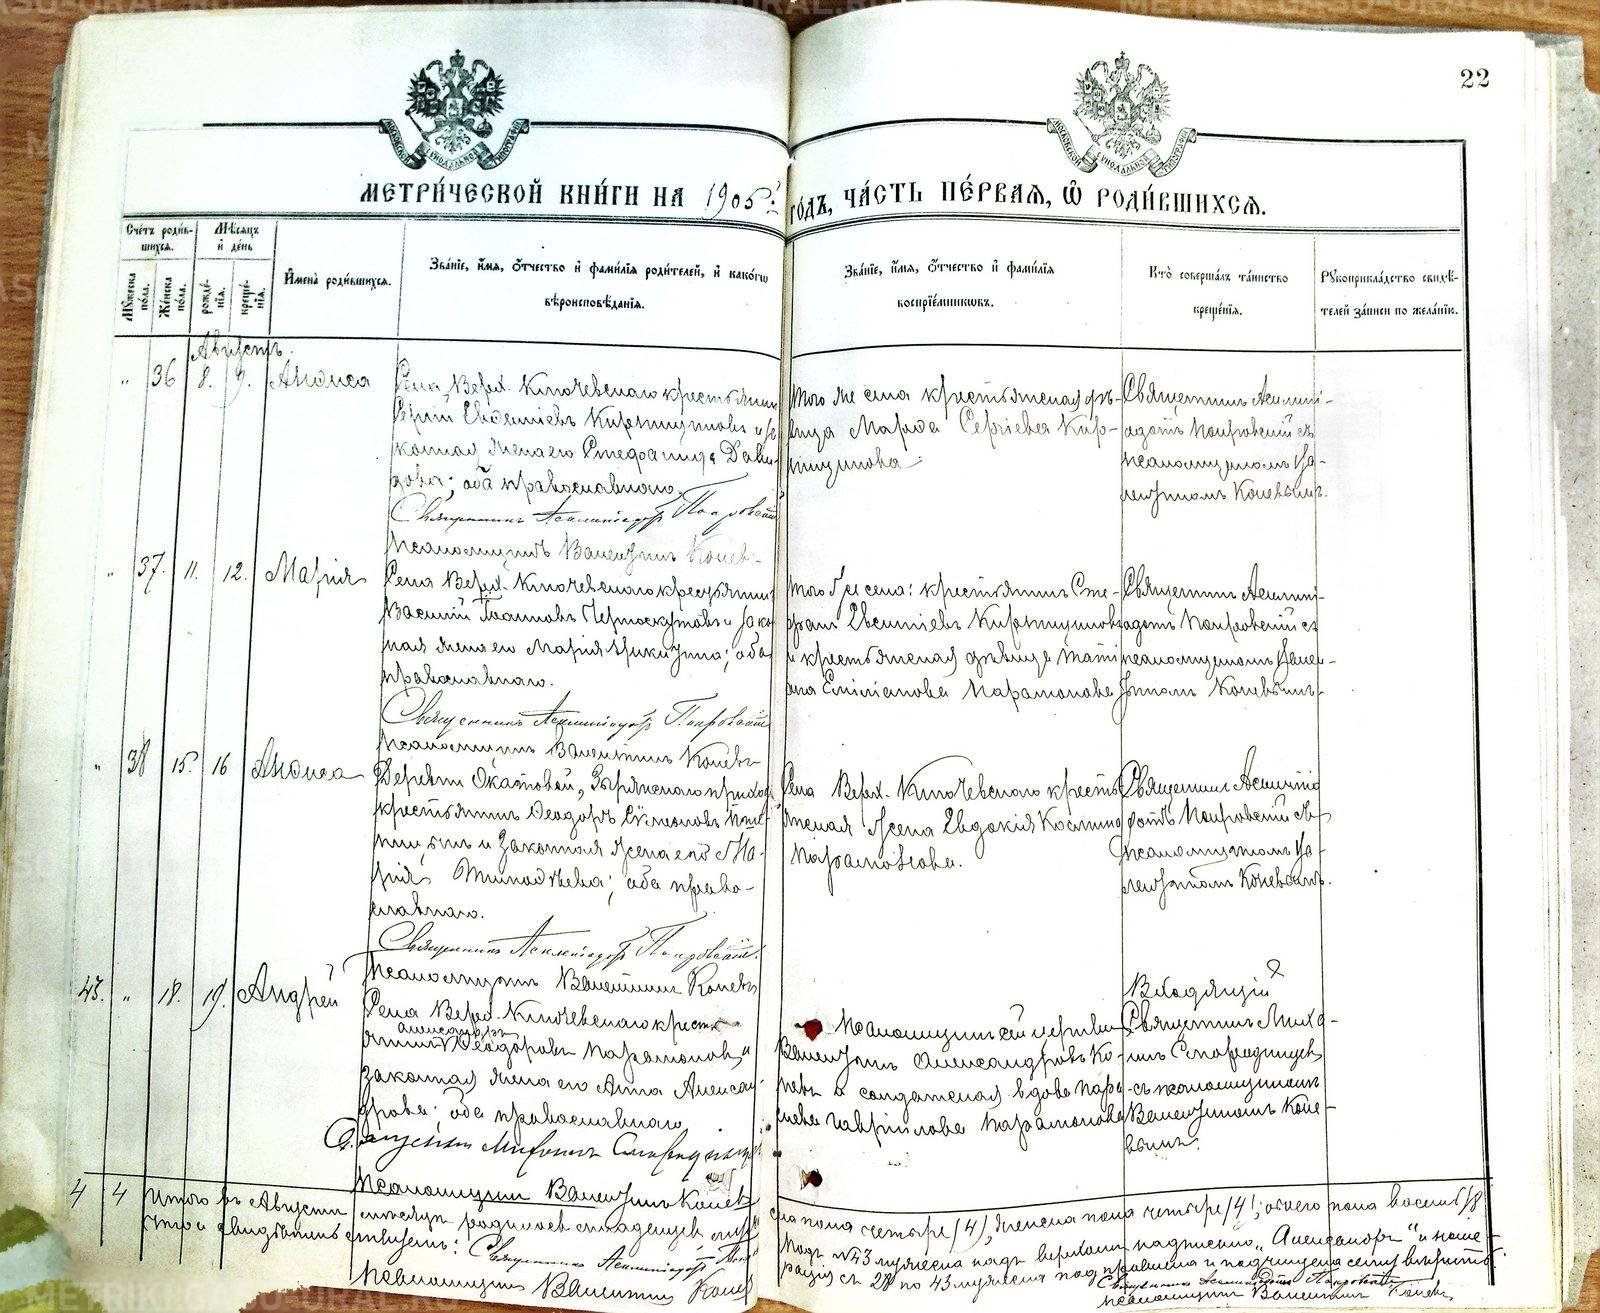 22
МЕТРИ́ЧЕСКОЙ КНИ́ГИ НА 1905 ГОДЪ, ЧА́СТЬ ПЕ́РВАЯ, Ѡ РОДИ́ВШИХСЯ.
Счетъ роди́вшихся.
Мѣсяцъ и день
Мужеска пола.
Женска пола.
рожденія.
крещенія.
Имена роди́вшихся.
Зва́ніе, имя, о́тчество и фами́лія роди́телей, и како́гѡ
вѣроисповѣ́данія.
Зва́ніе, имя, о́тчество и фами́лія
воспріе́мникѡвъ.
Кто̀ соверша́лъ та́инство
креще́нія.
Рукоприкла́дство свидѣ́-
телей за́писи по жела́нію.
Августъ.
" 36 8. 9. Анѳиса
Села Верх-Ключевскаго крестьянинъ
Сергій Евсигніевъ Кирпищиковъ и за-
конная жена его Стефанида Дави-
дова; оба православнаго.
Священникъ Асклипіодотъ Покровскій
Псаломщикъ Валентинъ Коневъ
того же села крестьянская дѣ-
вица Марѳа Сергіева Кир-
пищикова.
Священникъ Асклипі-
одотъ Покровскій съ
псаломщикомъ Ва-
лентиномъ Коневымъ.
" 37. 11. 12. Марія
Села Верх-Ключевскаго крестьянинъ
Василій Іоанновъ Черноскутовъ и зако-
нная жена его Марія Никитина; оба
православнаго.
Священникъ Асклипіодотъ Покровскій
Псаломщикъ Валентинъ Коневъ
того же села: крестьянинъ Сте-
фанъ Евсигніевъ Кирпищиковъ
и крестьянская дѣвица Тать-
яна Парамонова
Священникъ Асклипі-
одотъ Покровскій съ
псаломщикомъ Вален-
тиномъ Коневымъ.
" 38 15. 16 Анѳиса
Деревни Окатовой, Зырянскаго прихода
крестьянинъ Ѳеодоръ Симеоновъ
и законная жена его Ма-
рія Тимоѳѣева; оба право-
славнаго.
Священникъ Асклипіодотъ Покровскій.
Псаломщикъ Валентинъ Коневъ
Села Верх-Ключевскаго кресть-
янская жена Евдокія Космина
Парамонова.
Священникъ Асклипіо-
дотъ Покровскій съ
псаломщикомъ Ва-
лентиномъ Коневымъ.
43. " 18. 19. Андрей
Села Верх-Ключевскаго кресть-
Александръ
янинъ Ѳеодоровъ Парамоновъ и
законная жена его Анна Алексан-
дрова; оба православнаго
Священникъ
Псаломщикъ Валентинъ Коневъ
Псаломщикъ сей церкви
Валентинъ Александровъ Ко-
невъ и солдатская вдова
Гавріилова Парамонова
Священникъ Миха-
илъ
съ псаломщикомъ
Валентиномъ Коне-
вымъ.
4 4 Итого въ Августѣ мѣсяцѣ родилось младенцевъ муже-
ска пола четыре /4/, женска пола четыре /4/; обоего пола восемь /8
что и свидѣтельствуемъ: Священникъ Асклипіодотъ
Псаломщикъ Валентинъ Коневъ
Подъ №43 мужеска надъ верхомъ надписано "Александръ" и нуме-
рація съ 28 по 43 мужеска пол
Священникъ Асклипіодотъ Покровскій
Псаломщикъ Валентинъ Коневъ